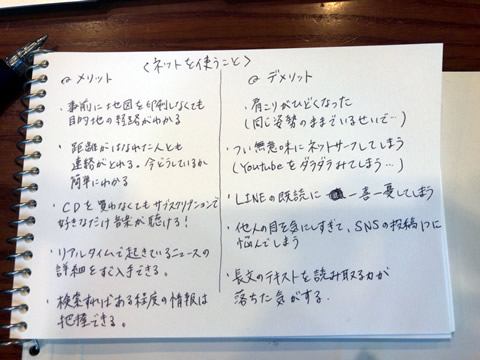 <ネットを使うこと>
◎ メリット
・事前に地図を印刷しなくても
目的地の経路がわかる
・距離がはなれた人とも
連絡がとれる。今どうしているか
簡単にわかる
・CDを買わなくてもサブスクリプションで
好きなだけ音楽が聴ける!
・リアルタイムで起きているニュースの
詳細をすぐ入手できる。
・検索すればある程度の情報は
把握できる。
◎ デメリット
・肩こりがひどくなった
(同じ姿勢のままでいるせいで…)
・つい無意味にネットサーフしてしまう
(Youtubeをダラダラみてしまう…)
・LINEの既読に一喜一憂してしまう
・他人の目を気にしすぎて、SNSの投稿1つに
悩んでしまう
・長文のテキストを読み取る力が
落ちた気がする.